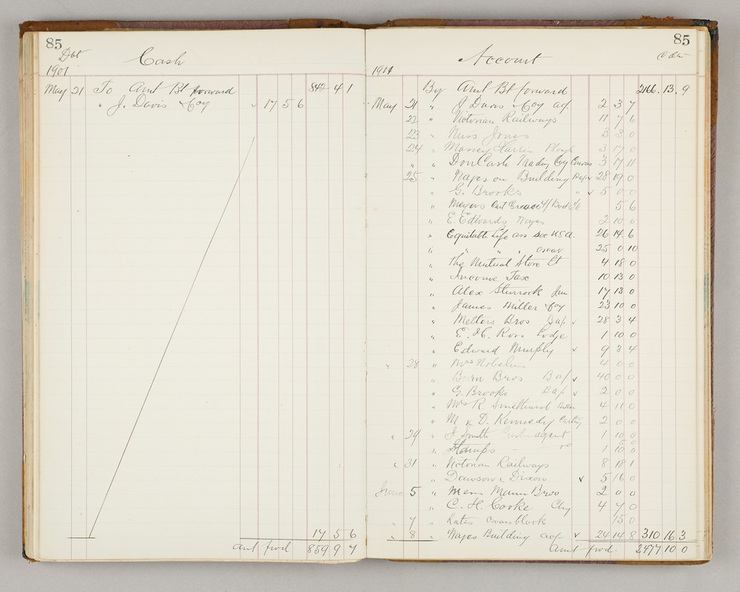 85
Dbt
Cash
1901
May 21 To Amt Bt forward 842 4 1
" J. Davis & Coy 17 5 6
17 5 6
Amt fwd 859 9 7
85
Account
Cdr
1901
By Amt Bt forward 2166. 13. 9
May 21 " J Davis & Coy a/c 2 3 7
22 " Victorian Railways 11 7 6
23 " Miss Jones 3 3 0
24 " Massey Harris 3 17 0
" " Don Cash Trading Coy 3 17 11
25 " Wages on Building 28 19 0
" G. Brookes 5 0 0
" Meyers 5 6
" E. Edwards Wages 2 10 0
" Equitable Life ass Soc U.S.A. 26 14 6
" " " 25 0 10
" The Mutual Store Lt 4 18 0
" Income Tax 10 13 0
" Alex Sturrock Jun 17 13 0
" James Miller & Coy 23 10 0
" Mellors Bros 28 3 4
" E. H. Ross Lodge 1 10 0
" Edward Murphy 9 3 4
" 28 " Mrs 4 0 0
" Bros 40 0 0
" G. Brooks 2 0 0
" Mrs R Smethurst 4 11 0
" M & D. Kennedy 2 0 0
" 29 " J Smith 1 10 0
" Stamps 1 10 0
" 31 " Victorian Railways 8 18 1
" Dawson & Dixon 5 16 0
June 5 " Mann Bros 2 0 0
" C. H. Cooke 4 7 0
" 7 " 15 0
" 8 " Wages Building a/c 24 14 8 310 16 3
Amt fwd. 2477 10 0